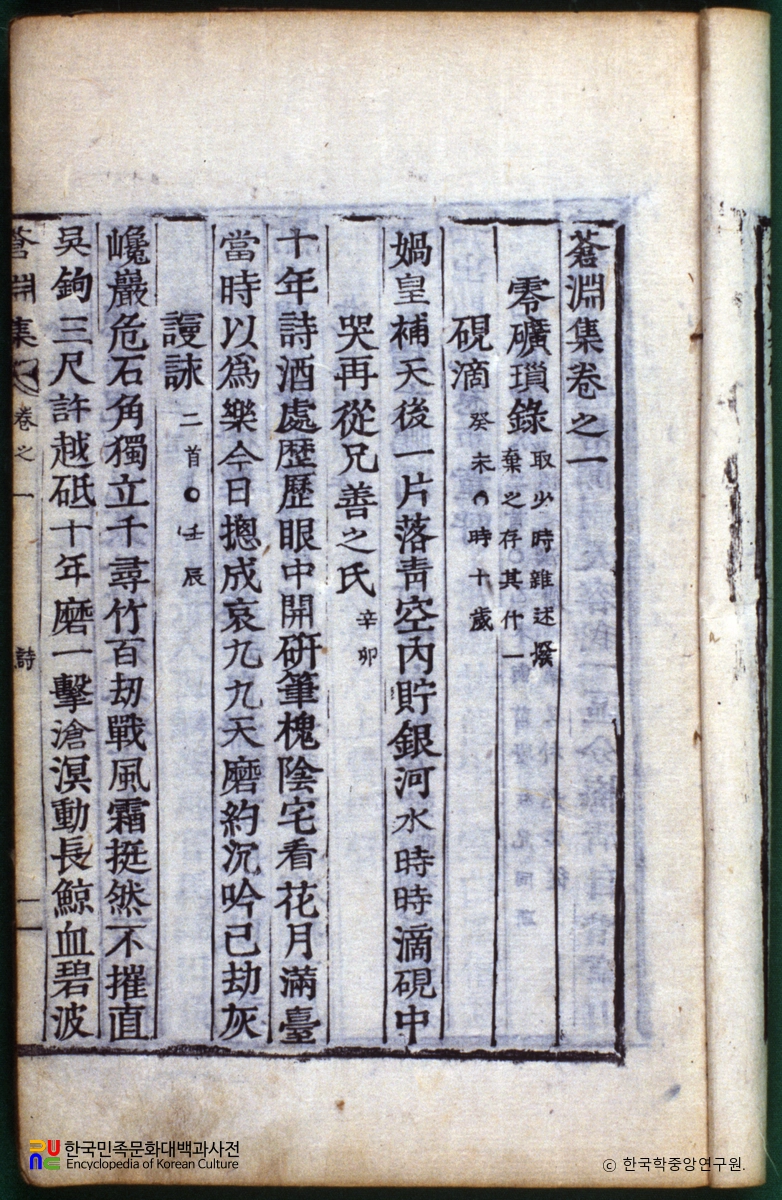 蒼淵集卷之一
零礦瑣錄 取少時雜述撥棄之存其什一
硯滴 癸未○時十歲
媧皇補天後一片落靑空內貯銀河水時時滴硯中
哭再從兄善之氏 辛卯
十年詩酒處歷歷眼中開硏筆槐陰宅看花月滿臺
當時以爲樂今日摠成哀九九天磨約沉吟已劫灰
謾詠 二首○壬辰
巉巖危石角獨立千尋竹百劫戰風霜挺然不摧直
吳鉤三尺許越砥十年磨一擊滄溟動長鯨血碧波
蒼淵集 卷之一 詩 一
한국민족문화대백과사전
Encyclopedia of Korean Culture
© 한국학중앙연구원.